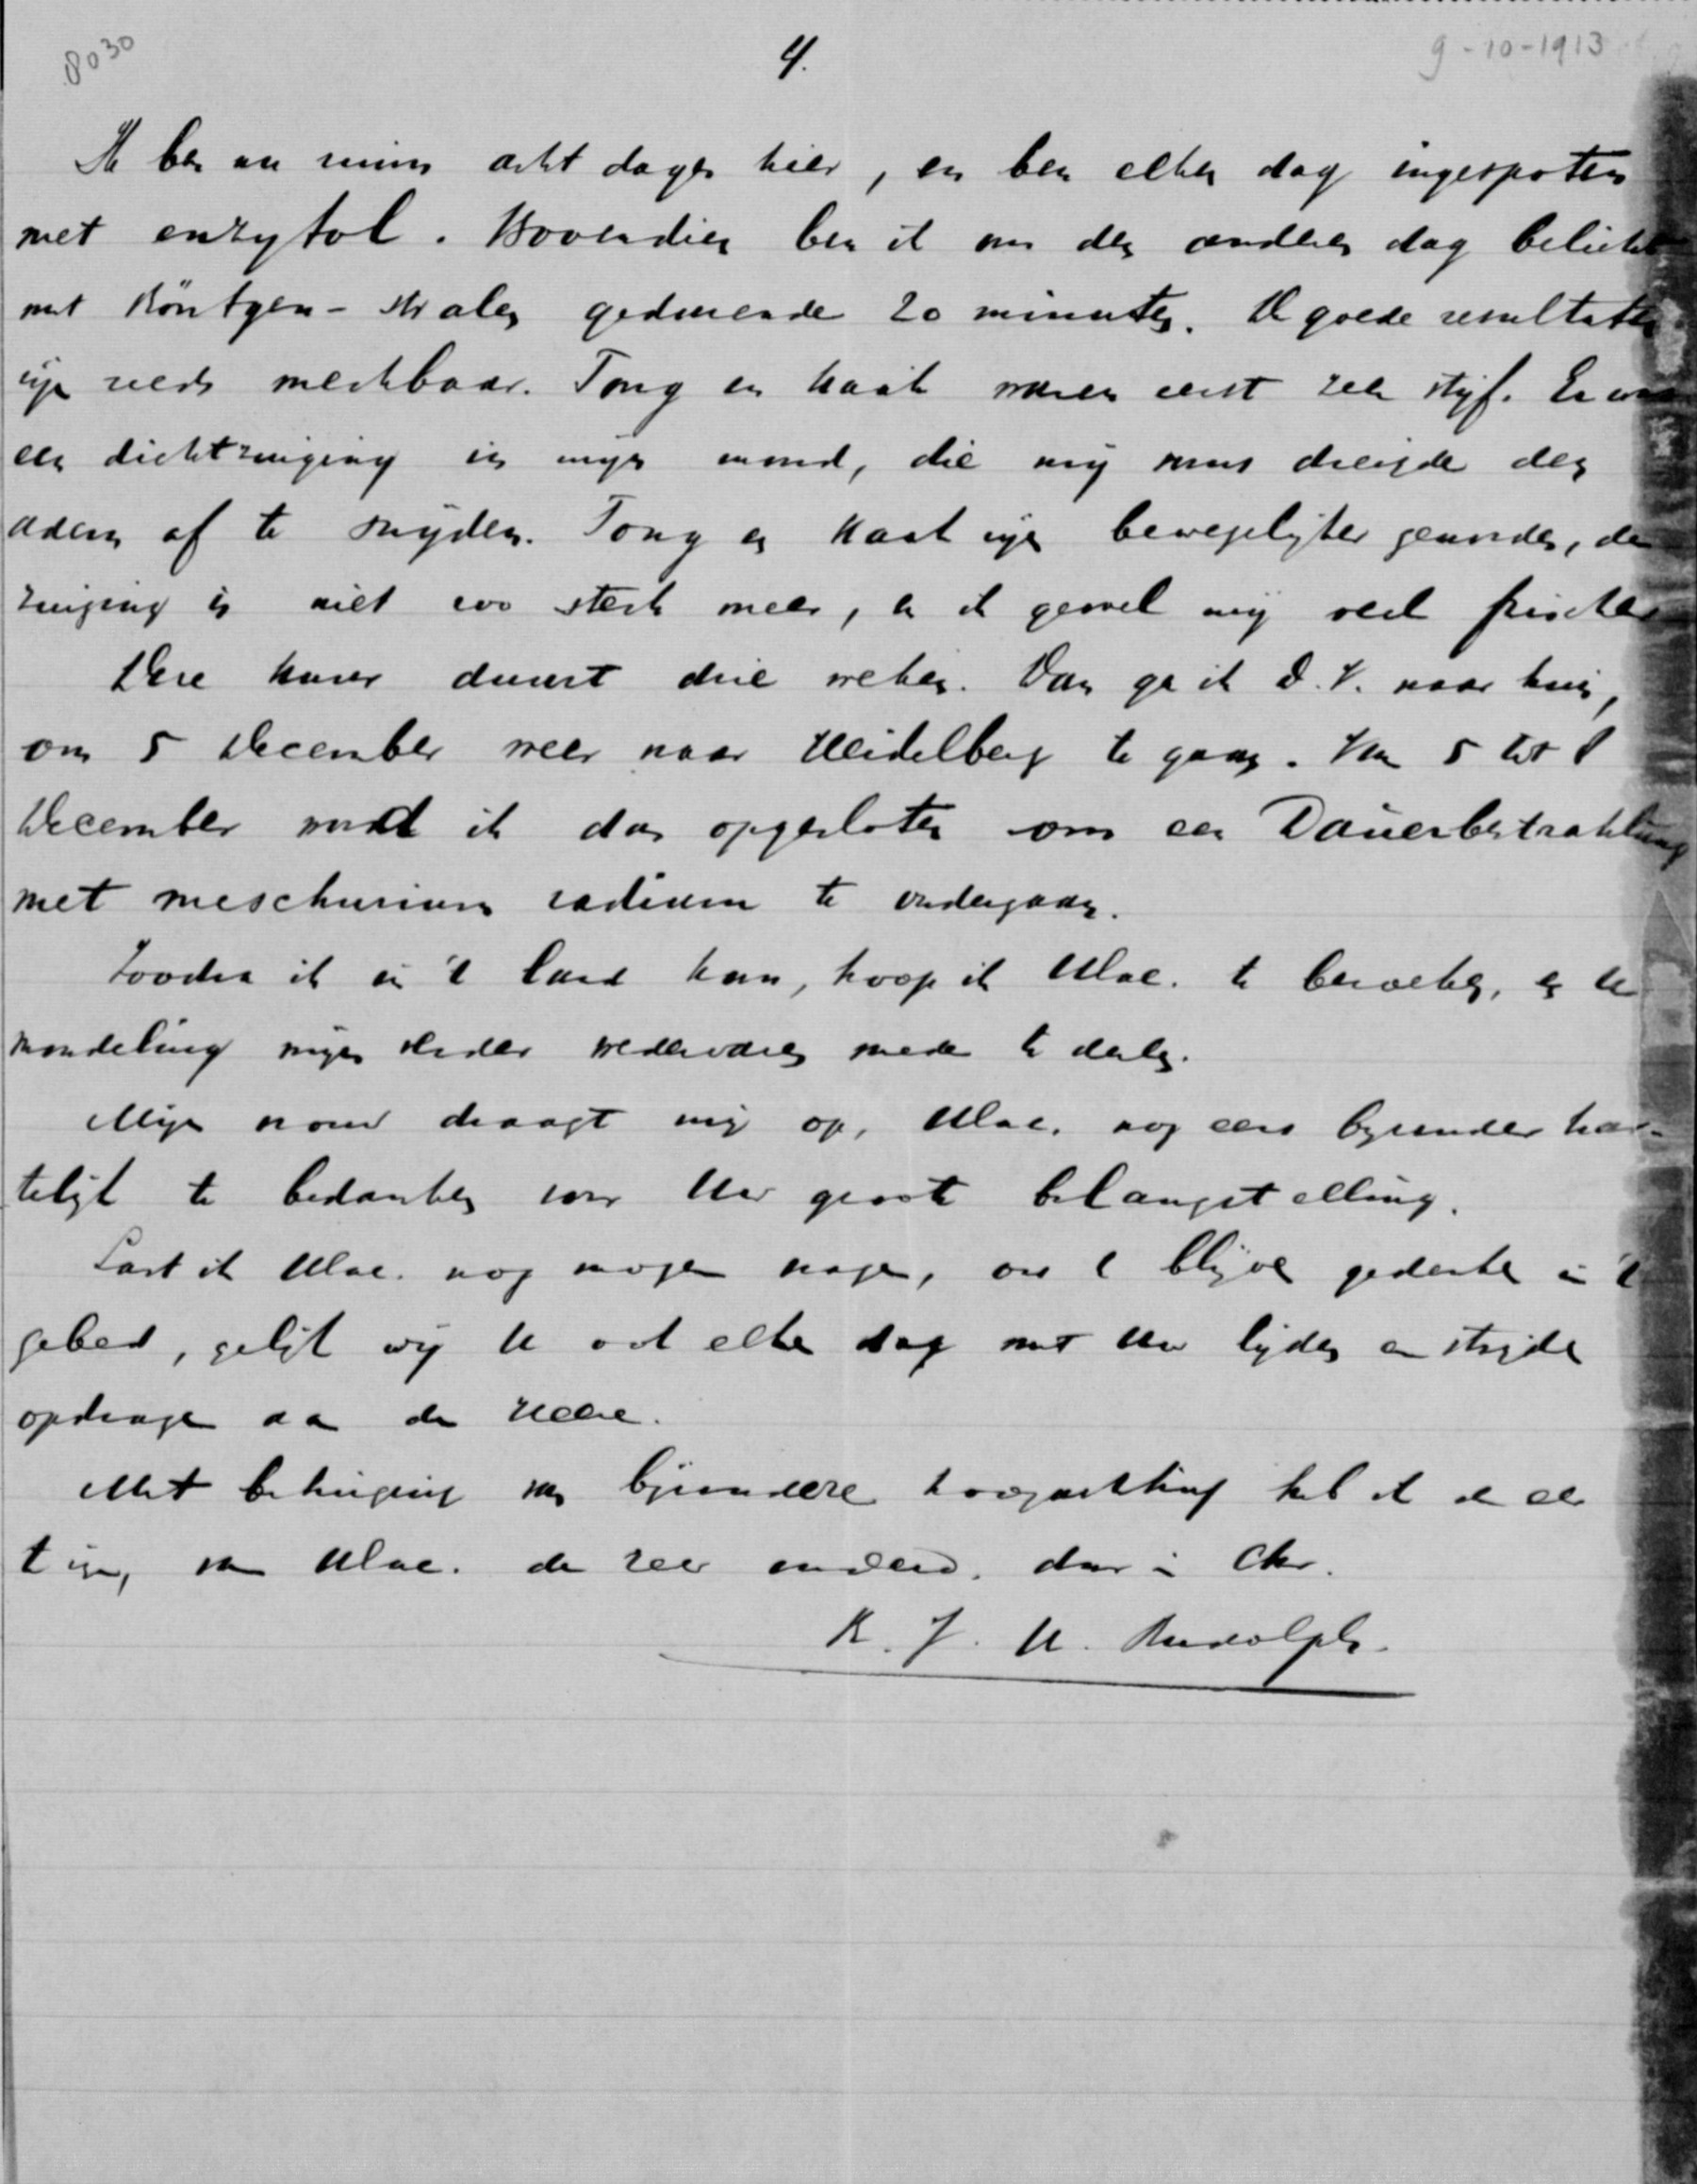 8030
4.
9-10-1913
Ik ben nu ruim acht dagen hier, en ben elken dag ingespoten
met enzytol. Bovendien ben ik om den anderen dag belicht
met Röntgen-stralen gedurende 20 minuten. De goede resultaten
zijn reeds merkbaar. Tong en kaak waren eerst zeer stijf. Er was
een dichtzuiging in mijn mond, die mij soms dreigde den
adem af te snijden. Tong en kaak zijn bewegelijker geworden, de
zuiging is niet zoo sterk meer, en ik gevoel mij veel frisscher
Deze kuur duurt drie weken. Dan ga ik D.V. naar huis,
om 5 December weer naar Heidelberg te gaan. Van 5 tot 8
December word ik dan opgesloten om een Dauerbestrahlung
met meschurium radium te ondergaan.
Zoodra ik in 't land kom, hoop ik UEac. te bezoeken, en U
mondeling mijn verder wedervaren mede te deelen.
Mijn vrouw draagt mij op, UEac. nog eens bijzonder har-
telijk te bedanken voor Uw groote belangstelling.
Laat ik UEac. nog mogen vragen, ons te blijven gedenken in 't
gebed, gelijk wij U ook elken dag met Uw lijden en strijden
opdragen aan den Heere.
Met betuiging van bijzondere hoogachting heb ik de eer
te zijn, van UEac. de zeer onderd. dnr in Chr.
K. J. U. Rudolph.